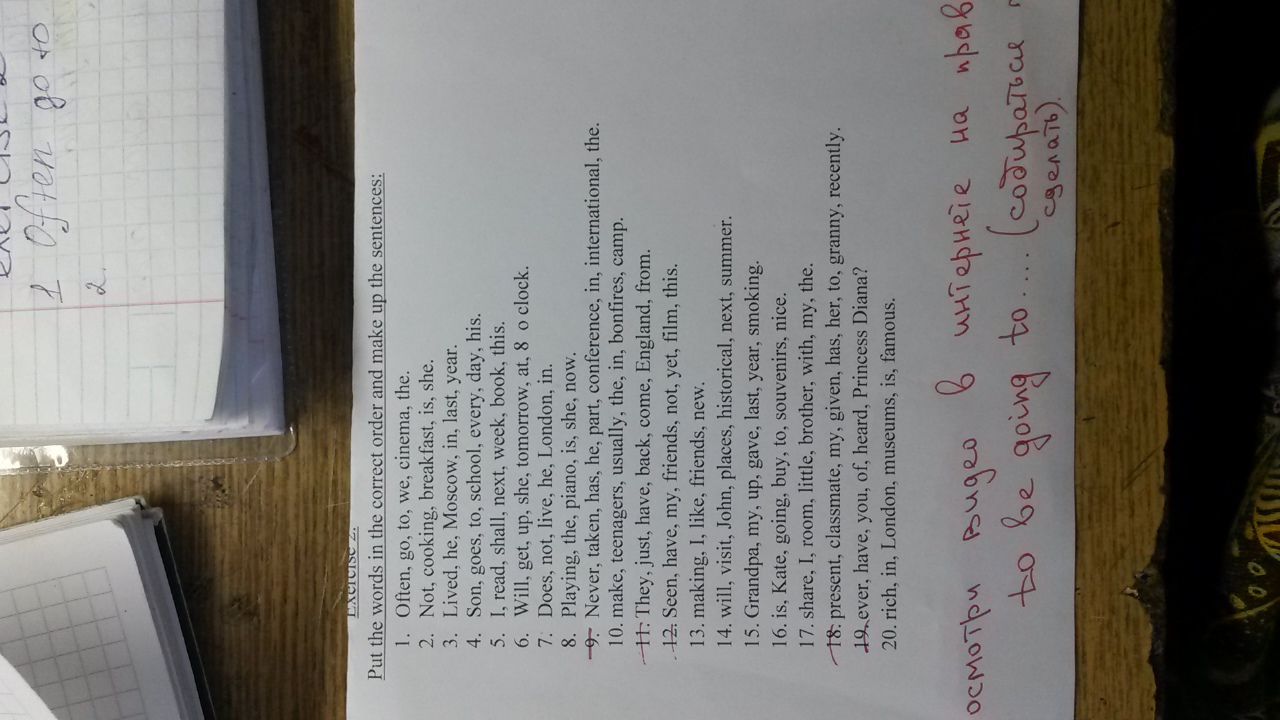 1 Often go to
2.
Exercise 2.
Put the words in the correct order and make up the sentences:
1. Often, go, to, we, cinema, the.
2. Not, cooking, breakfast, is, she.
3. Lived, he, Moscow, in, last, year.
4. Son, goes, to, school, every, day, his.
5. I, read, shall, next, week, book, this.
6. Will, get, up, she, tomorrow, at, 8 o clock.
7. Does, not, live, he, London, in.
8. Playing, the, piano, is, she, now.
9. Never, taken, has, he, part, conference, in, international, the.
10. make, teenagers, usually, the, in, bonfires, camp.
11. They, just, have, back, come, England, from.
12. Seen, have, my, friends, not, yet, film, this.
13. making, I, like, friends, new.
14. will, visit, John, places, historical, next, summer.
15. Grandpa, my, up, gave, last, year, smoking.
16. is, Kate, going, buy, to, souvenirs, nice.
17. share, I, room, little, brother, with, my, the.
18. present, classmate, my, given, has, her, to, granny, recently.
19. ever, have, you, of, heard, Princess Diana?
20. rich, in, London, museums, is, famous.
осмотри видео в интернете на прав
to be going to.... (собираться
сделать).